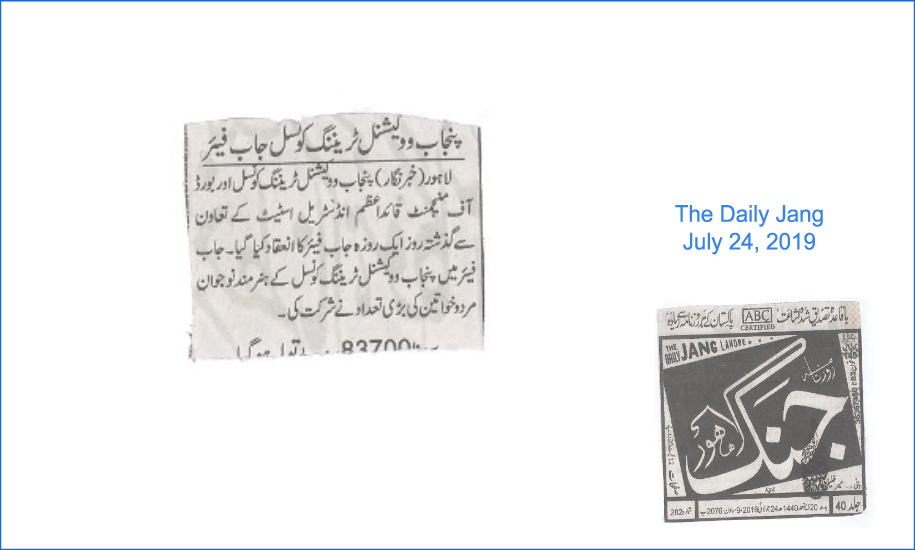 پنجاب ووکیشنل ٹریننگ کونسل جاب فیئر
لاہور (خبرنگار) پنجاب ووکیشنل ٹریننگ کونسل اور بورڈ
آف منیجمنٹ قائداعظم انڈسٹریل اسٹیٹ کے تعاون
سے گذشتہ روز ایک روزہ جاب فیئر کا انعقاد کیا گیا۔ جاب
فیئر میں پنجاب ووکیشنل ٹریننگ کونسل کے ہنرمند نوجوان
مرد و خواتین کی بڑی تعداد نے شرکت کی۔
83700
The Daily Jang
July 24, 2019
باقاعدہ تصدیق شدہ اشاعت ABC CERTIFIED پاکستان کے ہر روزنامہ سے زیادہ
THE DAILY JANG LAHORE
روزنامہ
جنگ
لاہور
جلد 40 بدھ 20 ذیقعد 1440ھ 24 جولائی 2019ء 9 ساون 2076ب شمارہ 282